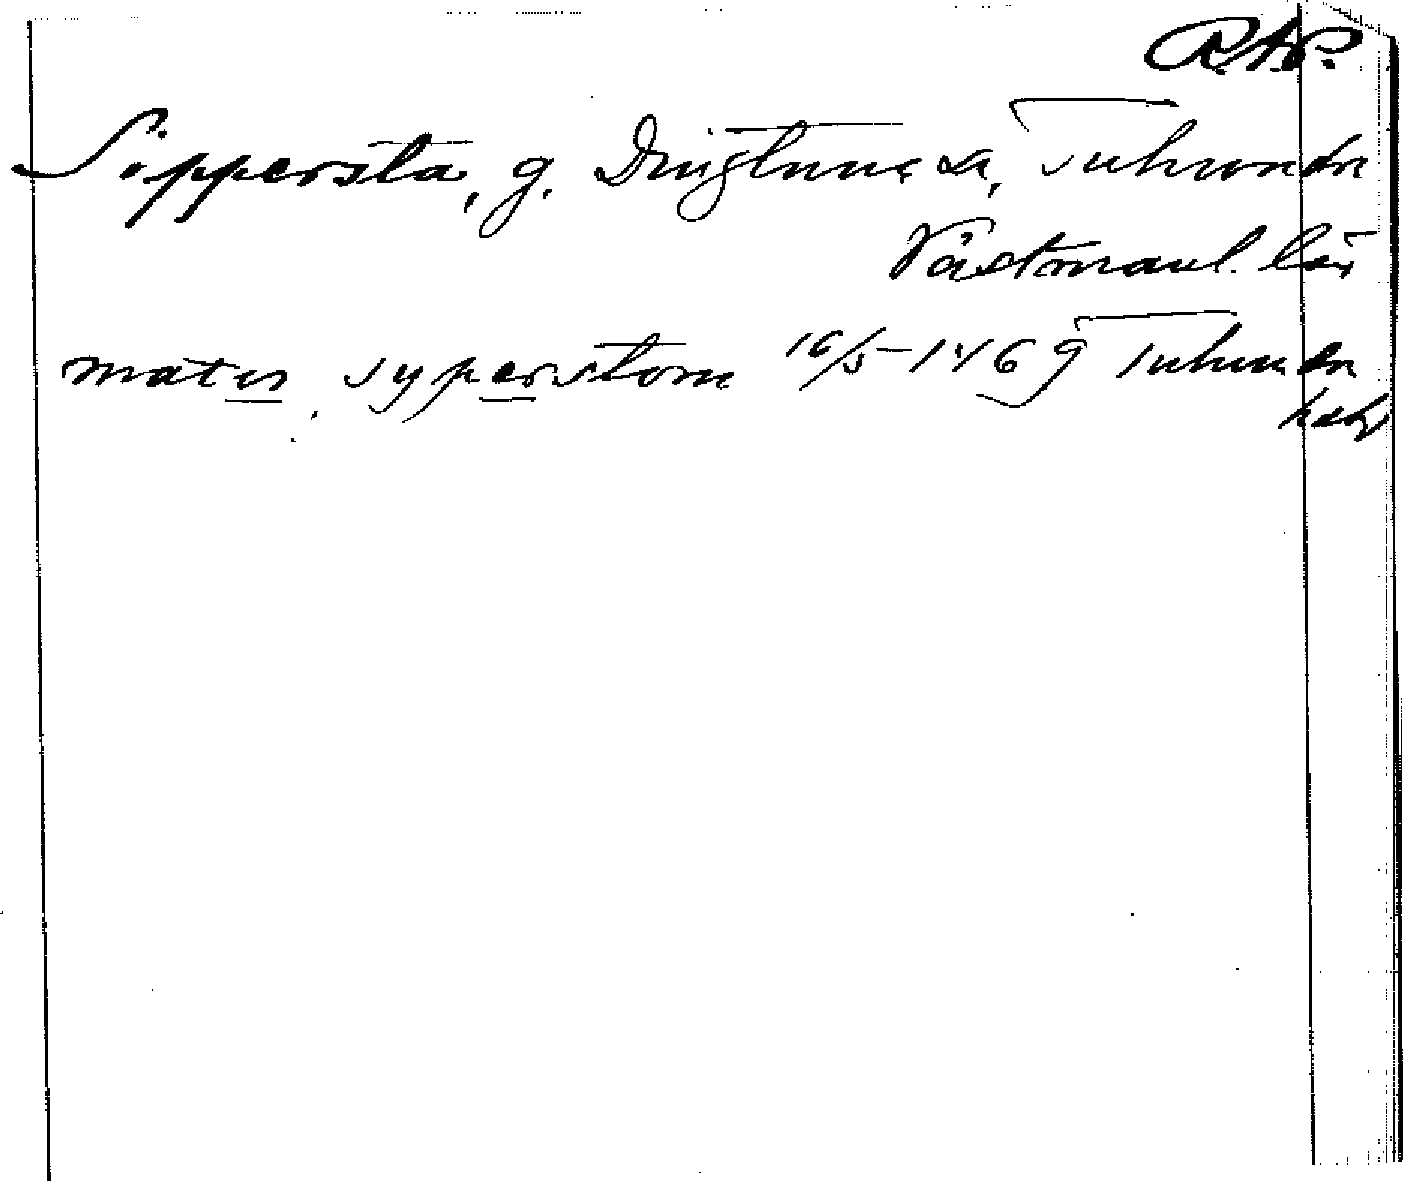 R.A.P.
Sippersta, g. Dingtuna sn, Tuhundra
Västmanl. län
matis syperstom 16/5-1469 Tuhundra
hd